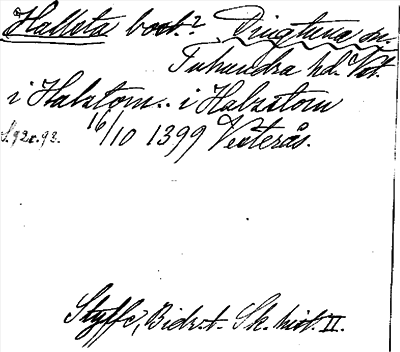 Hallsta bost.? Dingtuna sn.
Tuhundra hd. Vstm.
i Halztom.. i Halzstom
S. 92 o. 93. 16/10 1399 Västerås.
Styffe, Bidr. t. Sk. hist. II.